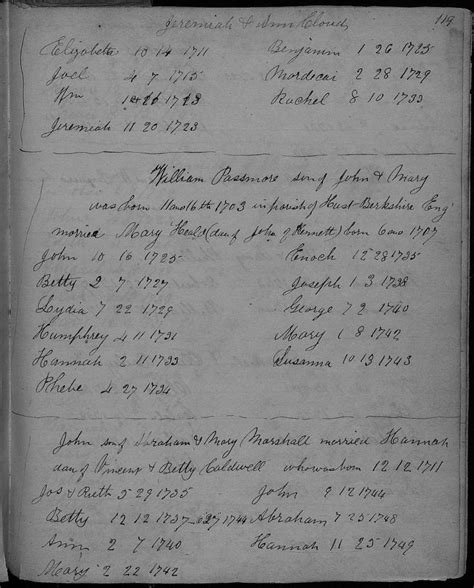 Jeremiah & Ann Cloud 119
Elizabeth 10 14 1711 Benjamin 1 26 1725
Joel 4 7 1715 Mordecai 2 28 1729
Wm 1713 Rachel 8 10 1733
Jeremiah 11 20 1723
William Passmore son of John & Mary
was born 11mo 16th 1703 in parish of Hust-Berkshire Eng
married Mary Heald (dau of John of Kennett) born 6mo 1707
John 10 16 1725 Enoch 12 28 1735
Betty 2 7 1727 Joseph 1 3 1738
Lydia 7 22 1729 George 7 2 1740
Humphrey 4 11 1731 Mary 1 8 1742
Hannah 2 11 1733 Susanna 10 13 1743
Phebe 4 27 1734
John son of Abraham & Mary Marshall married Hannah
dau of Vincent & Betty Caldwell who was born 12 12 1711
Jos & Ruth 5 29 1735 John 9 12 1744
Betty 12 12 1737 - 27 1744 Abraham 7 25 1748
Ann 2 7 1740 Hannah 11 25 1749
Mary 2 22 1742